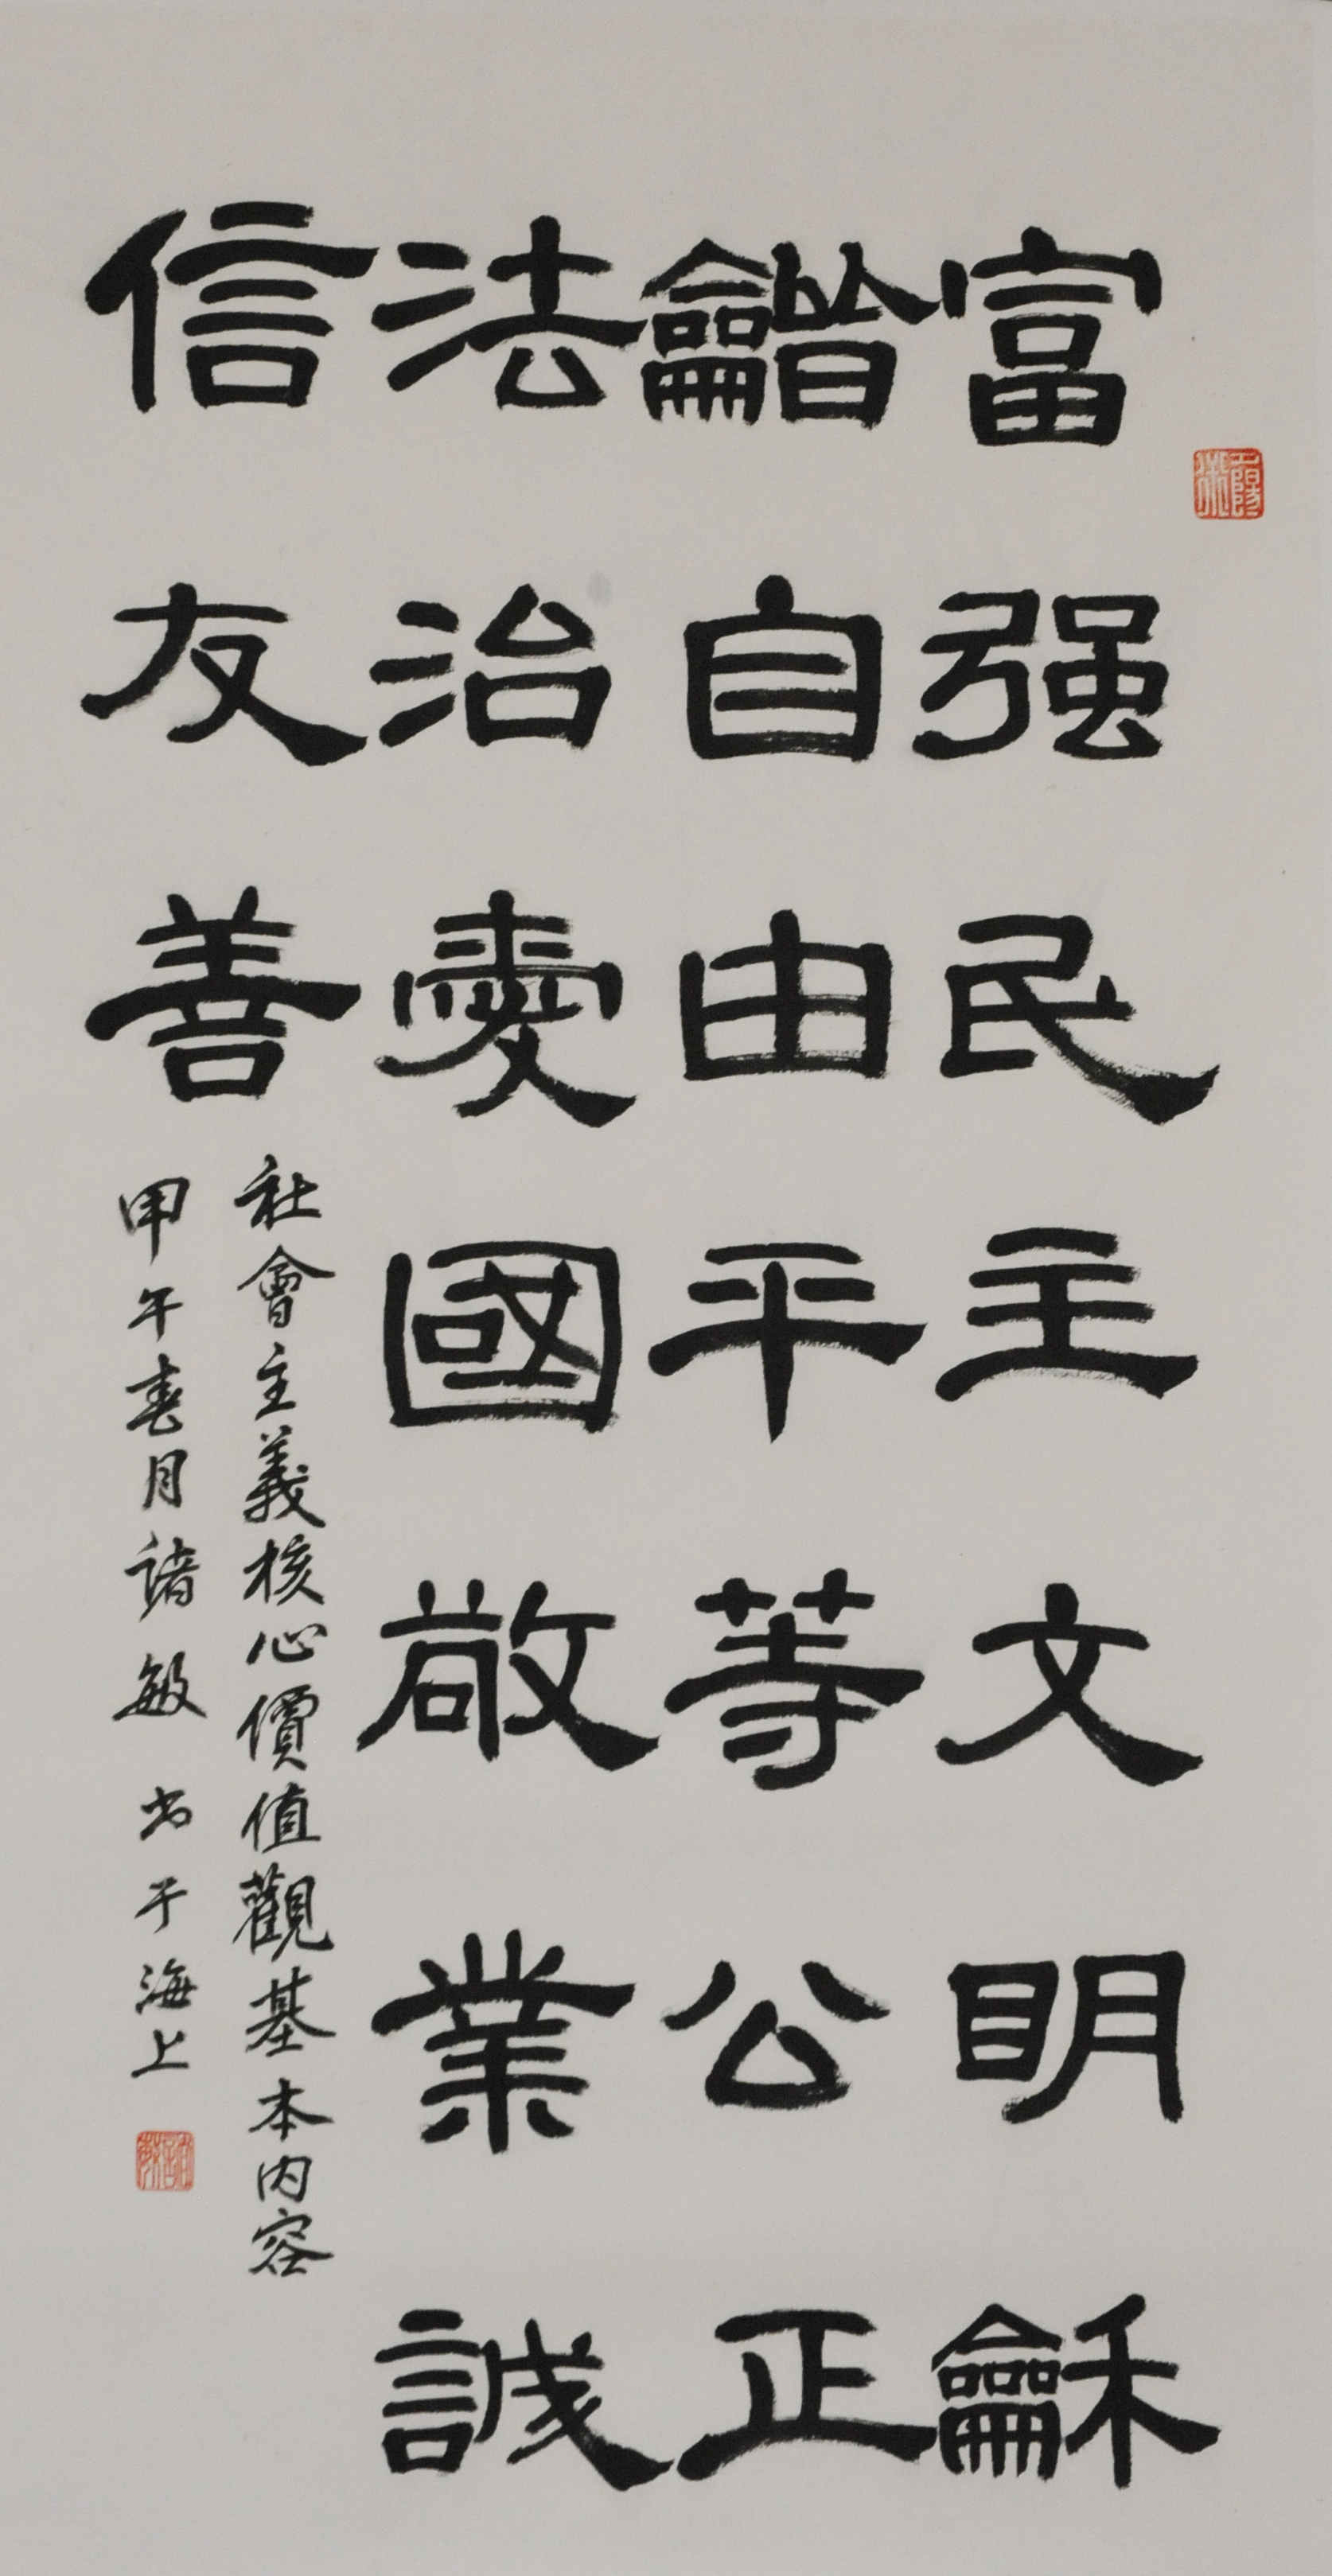 富强民主文明龢
龤自由平等公正
法治愛國敬業誠
信友善
社會主義核心價值觀基本內容
甲午春月諸敏书于海上
諸敏